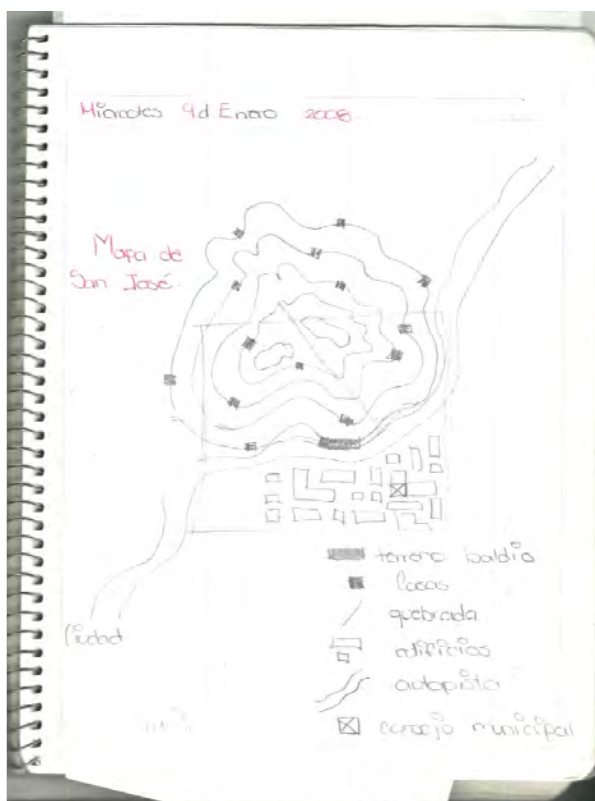 Miercoles 9 d Enero 2008
Mapa de
San José
terreno baldio
casas
quebrada
edificios
autopista
consejo municipal
Ciudad